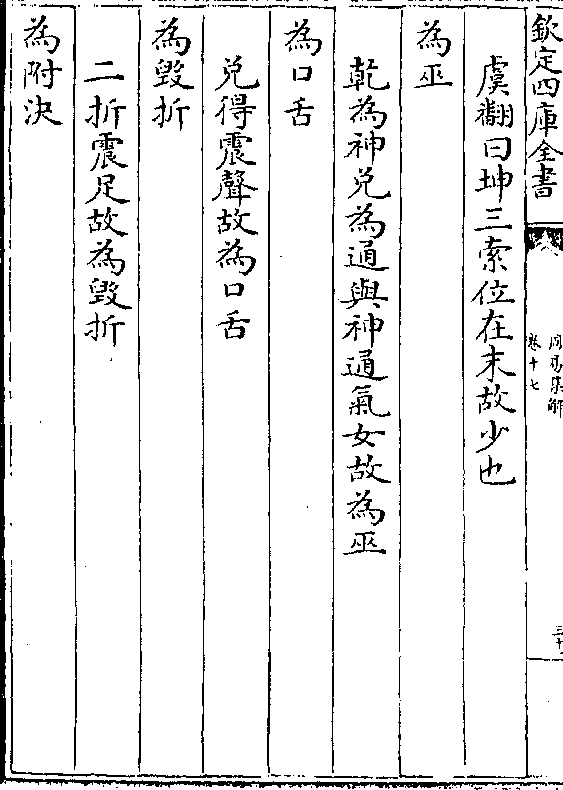 欽定四庫全書
周易集解
卷十七
虞翻曰坤三索位在末故少也
為巫
乾為神兑為通與神通氣女故為巫
為口舌
兑得震聲故為口舌
為毀折
二折震足故為毀折
為附決